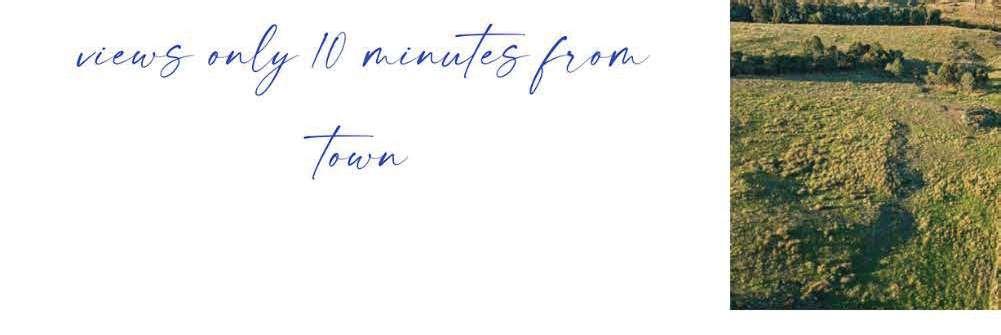 views only 10 minutes from
town